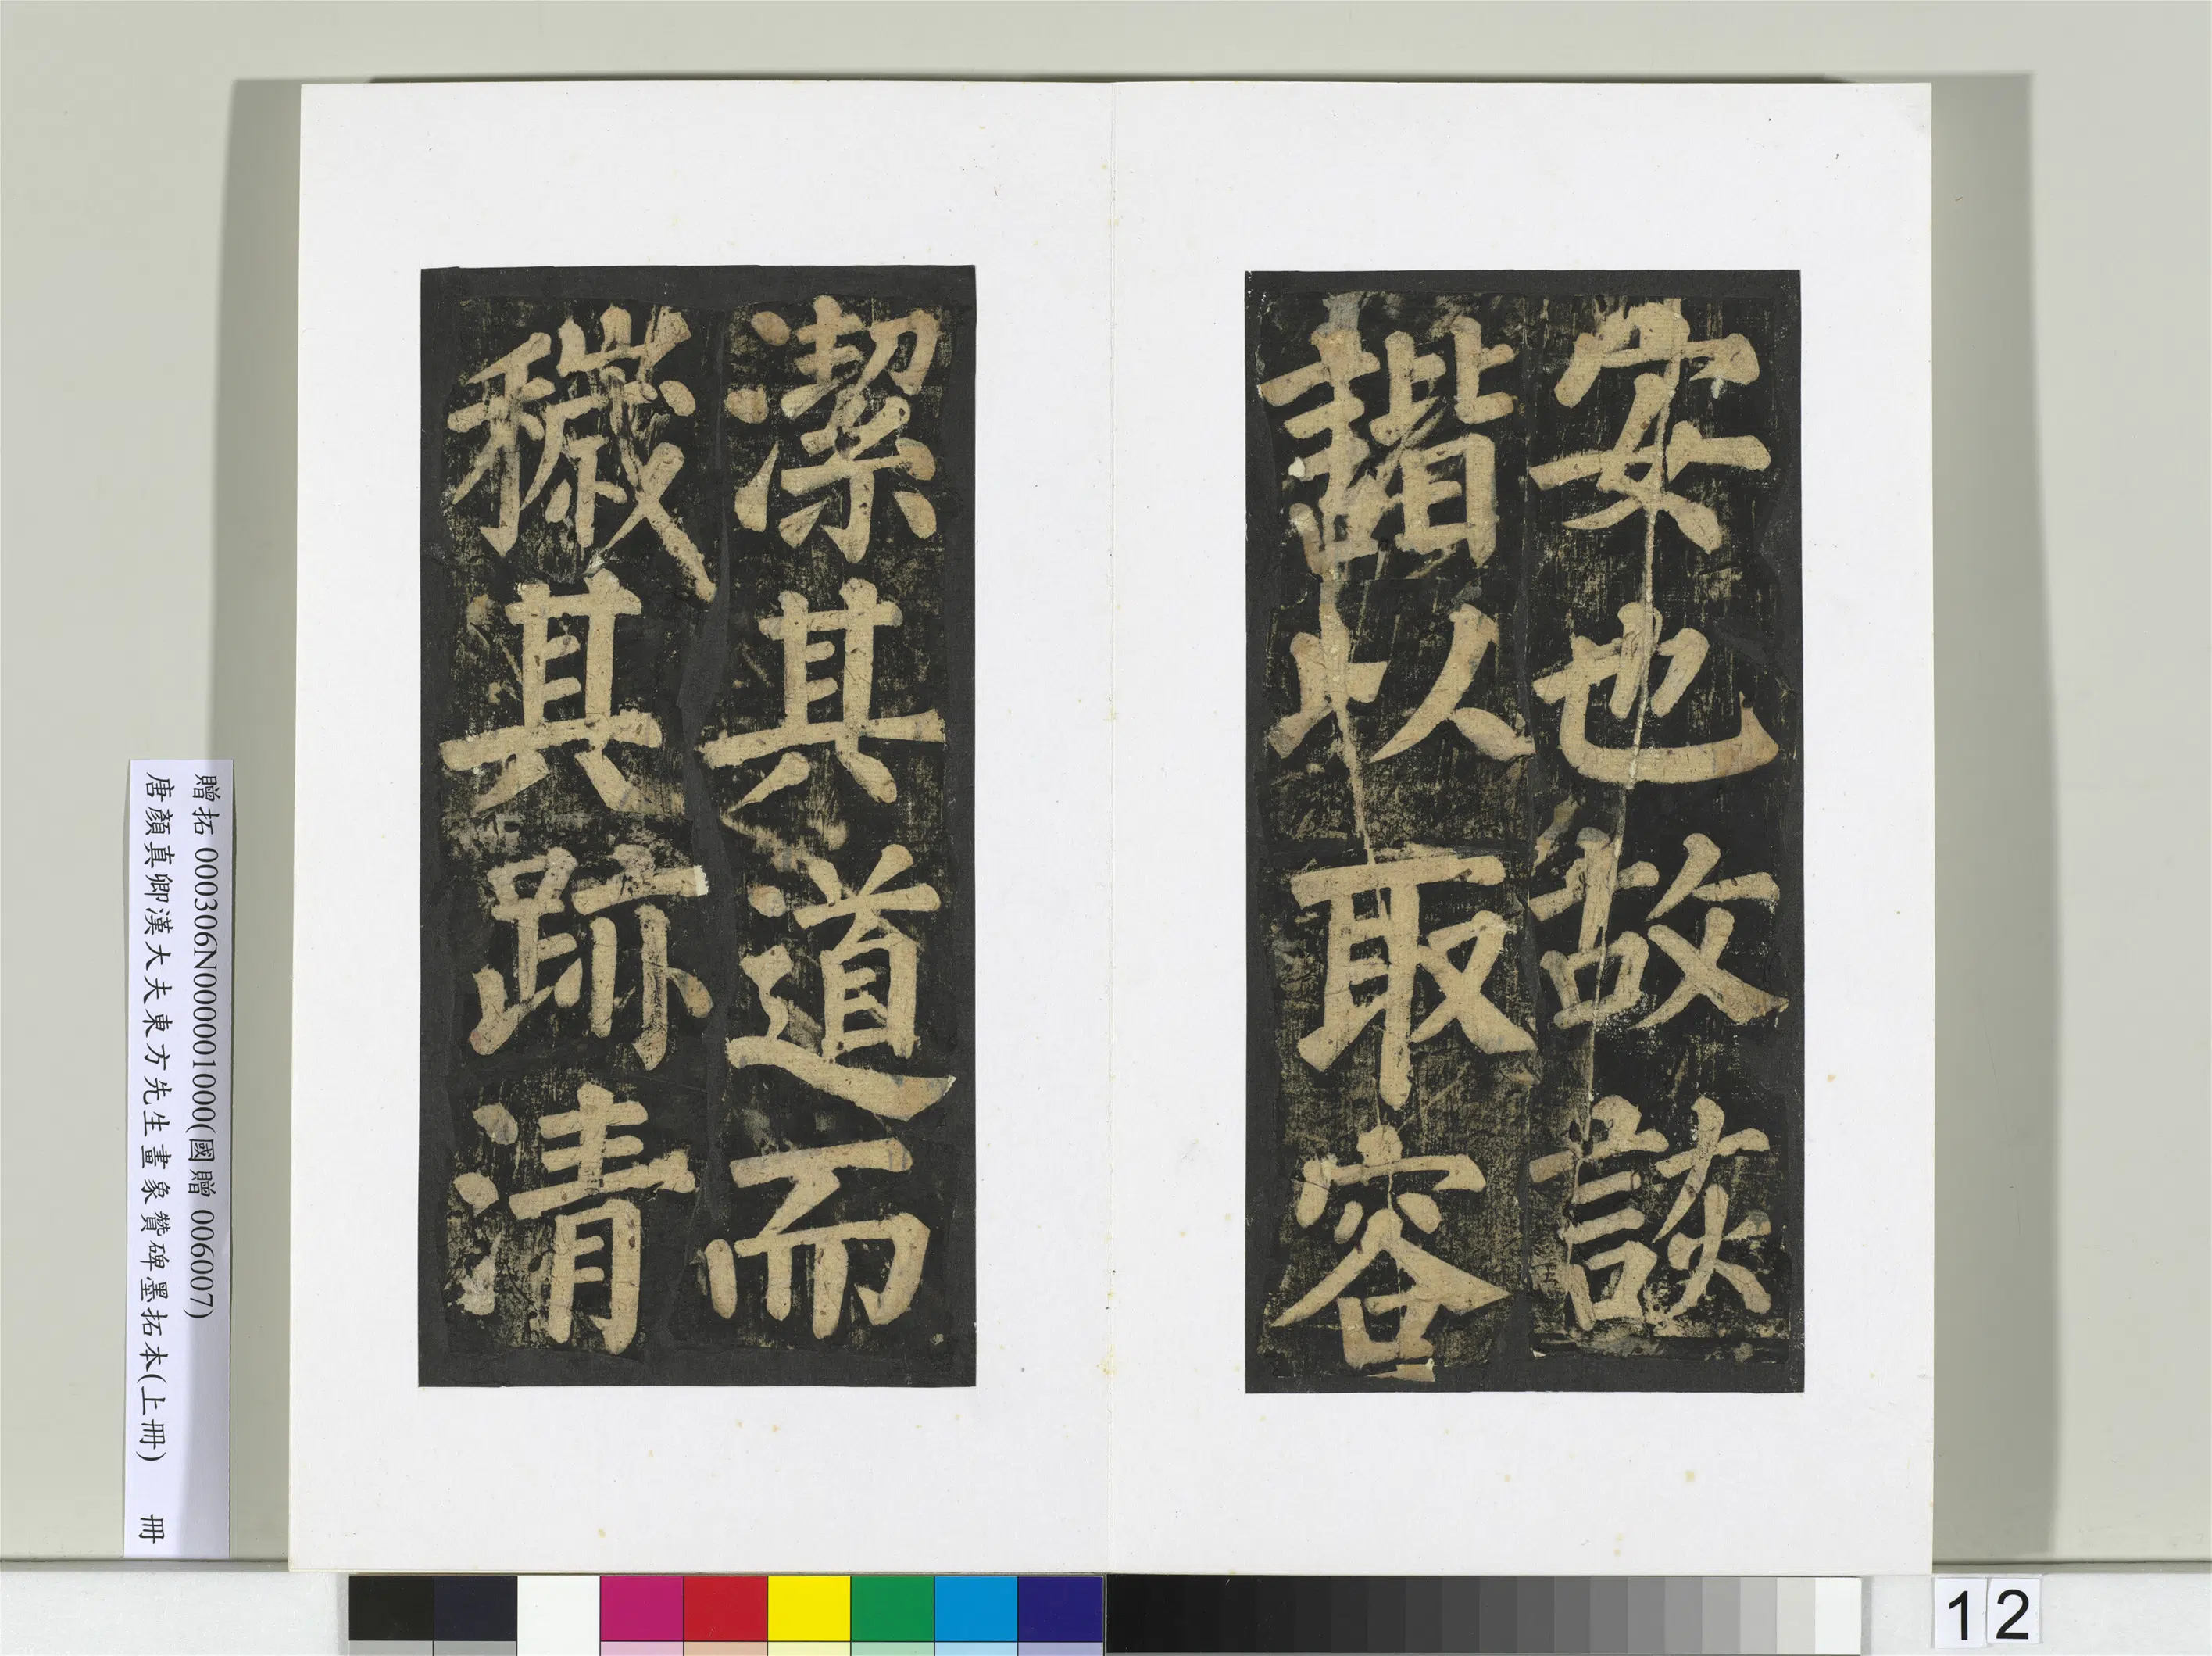 安也故談
諧以取容
潔其道而
穢其跡清
贈拓 000306N000001000(國贈 006007)
唐顏真卿漢大夫東方先生畫象贊碑墨拓本(上冊) 冊
12